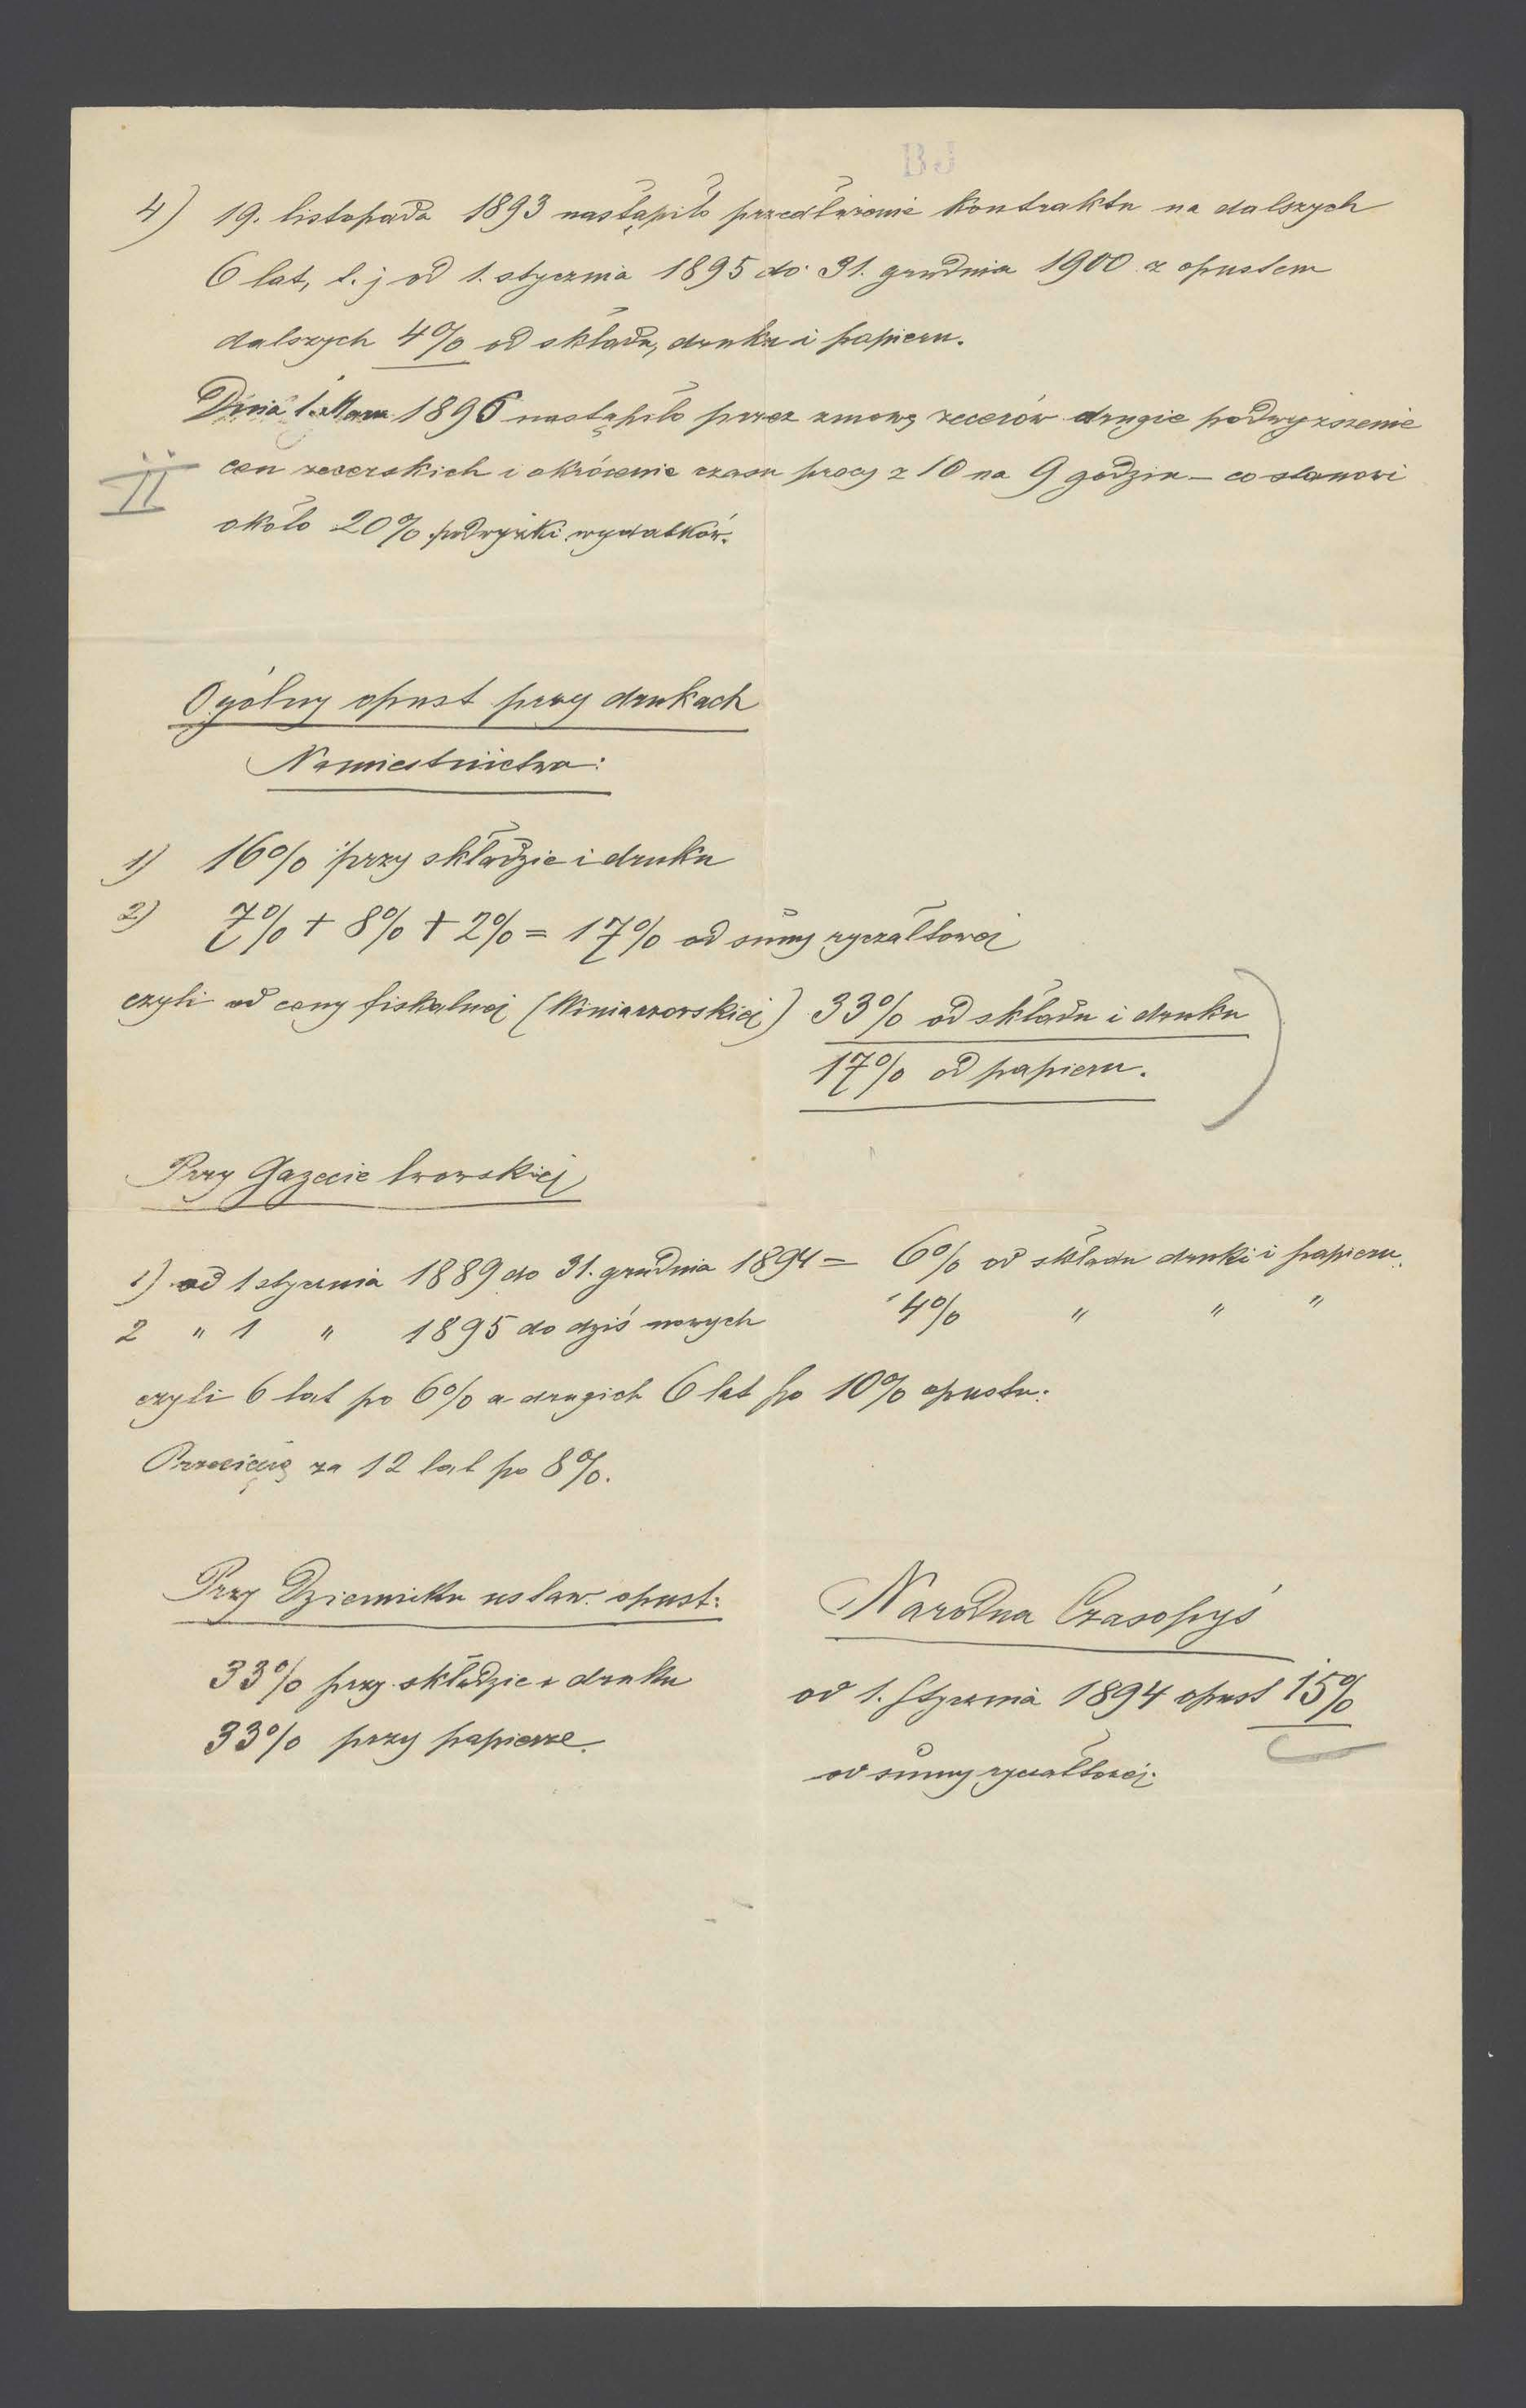 BJ
4) 19. listopada 1893 nastąpiło przedłużenie kontraktu na dalszych
6 lat, t. j od 1. stycznia 1895 do 31. grudnia 1900 z opustem
dalszych 4% od składu, druku i papieru.
Dnia 1. Marca 1896 nastąpiło przez zmowę zecerów drugie podwyższenie
II cen zecerskich i skrócenie czasu pracy z 10 na 9 godzin – co stanowi
około 20% podwyżki wydatków.
Ogólny opust przy drukach
Namiestnictwa:
1) 16% przy składzie i druku
2) 7% + 8% + 2% = 17% od sumy ryczałtowej
czyli od ceny fiskalnej (Winiarzowskiej) 33% od składu i druku
17% od papieru.
Przy Gazecie lwowskiej
1) od 1 stycznia 1889 do 31. grudnia 1894 = 6% od składu druki i papieru.
2 " 1 " 1895 do dziś nowych 4% " " "
czyli 6 lat po 6% a drugich 6 lat po 10% opustu.
Przecięcię za 12 lat po 8%.
Przy Dzienniku ustaw. opust:
33% przy składzie i druku
33% przy papierze.
Narodna Czasopyś
od 1. Stycznia 1894 opust 15%
od sumy ryczałtowej.